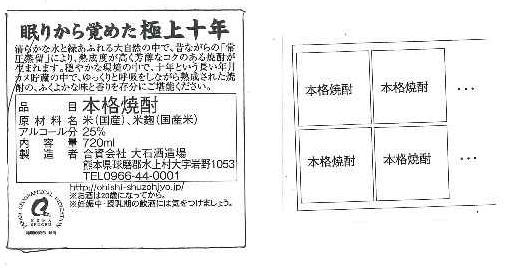 眠りから覚めた極上十年
清らかな水と緑あふれる大自然の中で、昔ながらの「常
圧蒸留」により、熟成度が高く芳醇なコクのある焼酎が
生まれます。穏やかな環境の中で、十年という長い年月
カメ貯蔵の中で、ゆっくりと呼吸をしながら熟成された焼
酎の、ふくよかな味と香りを存分にご堪能ください。
品目 本格焼酎
原材料名 米(国産)、米麹(国産米)
アルコール分 25%
内容量 720ml
製造者 合資会社 大石酒造場
熊本県球磨郡水上村大字岩野1053
TEL0966-44-0001
http://ohishi-shuzohjyo.jp/
※お酒は20歳になってから。
※妊娠中・授乳期の飲酒には気をつけましょう。
本格焼酎 本格焼酎 …
本格焼酎 本格焼酎 …